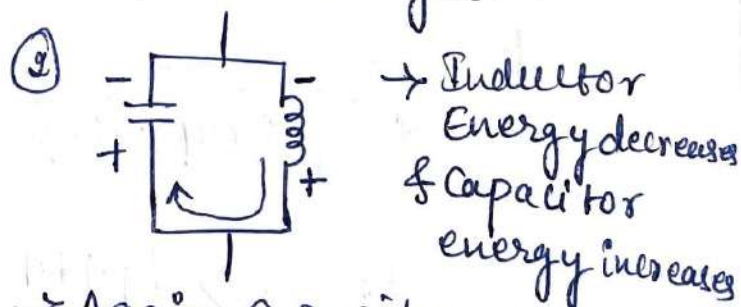 2
- -
+ +
→ Inductor
Energy decreases
& Capacitor
energy increases